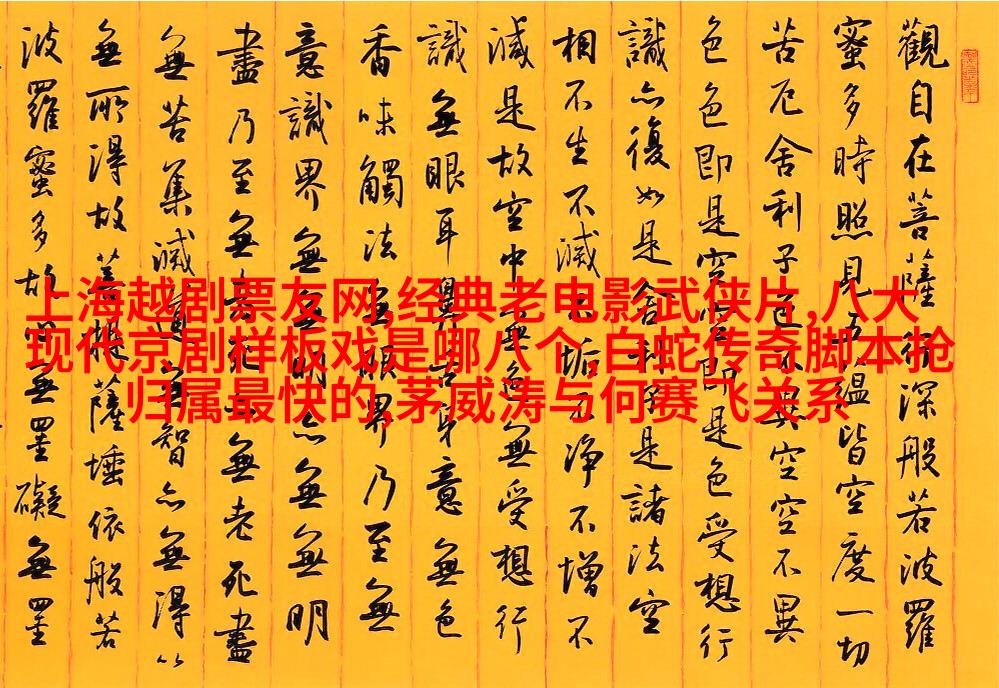 觀自在菩薩行深般若波羅
蜜多時照見五蘊皆空度一切
苦厄舍利子色不異空空不異
色色即是空空即是色受想行
識亦復如是舍利子是諸法空
相不生不滅不垢不淨不增不
減是故空中無色無受想行
識無眼耳鼻舌身意無色
香味觸法無眼界乃至無
意識界無無明亦無無明
盡乃至無老死亦無老死盡
無苦集滅道無智亦無得以
無所得故菩提薩埵依般若
波羅蜜多故心無罣礙無罣
上海越剧票友网,经典老电影武侠片,八大
现代京剧样板戏是哪八个,白蛇传奇脚本抢
归属最快的,茅威涛与何赛飞关系